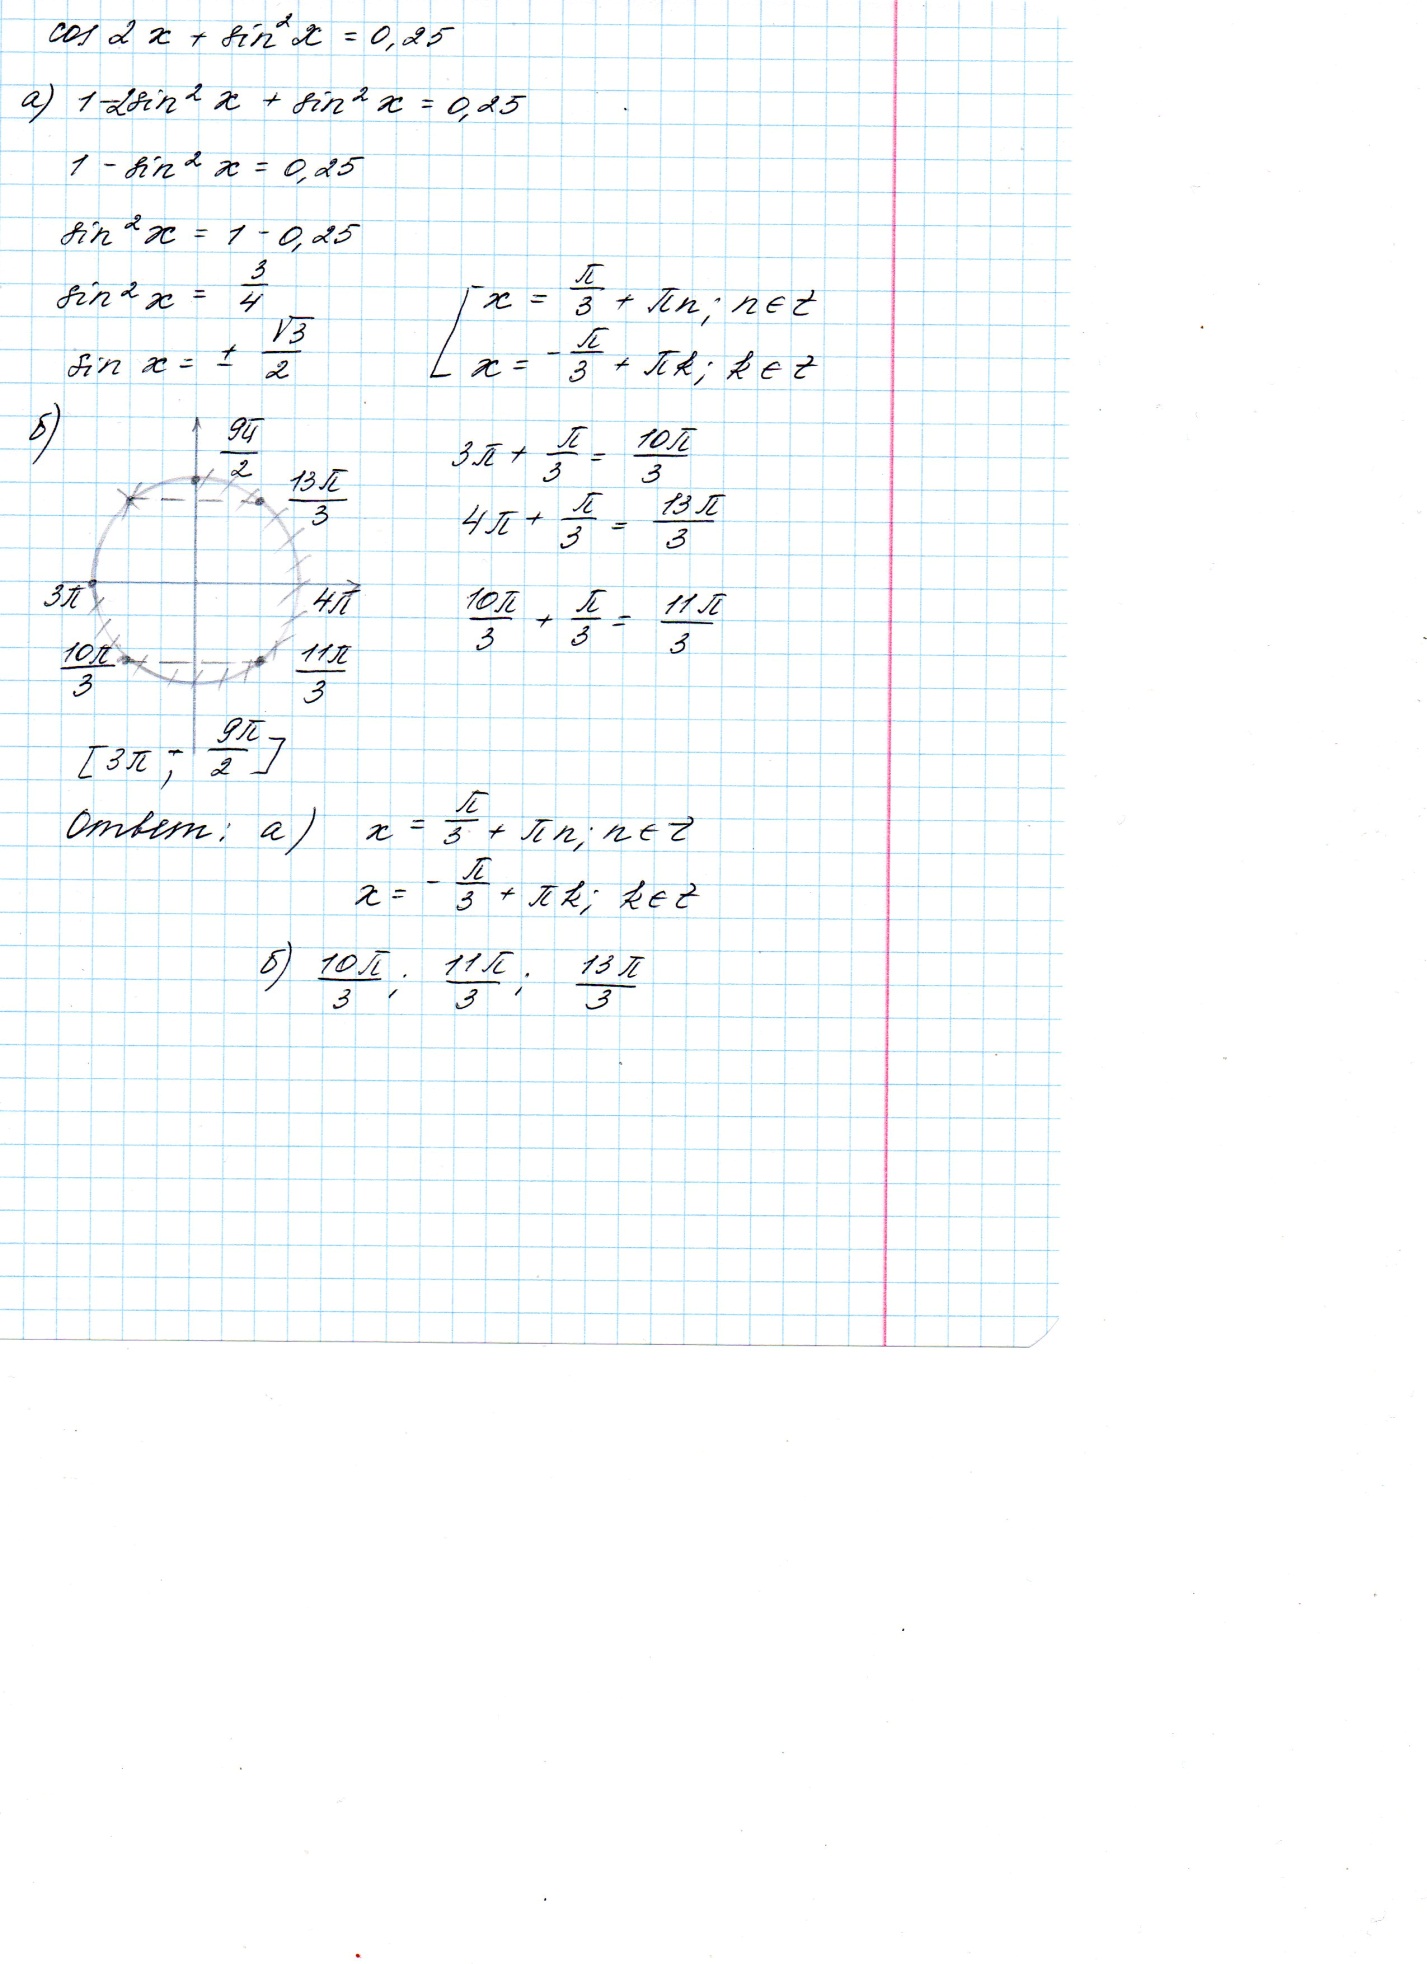 cos 2x + sin² x = 0,25
а) 1-2sin² x + sin² x = 0,25
1 - sin² x = 0,25
sin² x = 1 - 0,25
sin² x = 3/4
sin x = ± √3/2
[ x = π/3 + πn; n ∈ Z
x = -π/3 + πk; k ∈ Z
б)
9π/2
13π/3
3π
4π
10π/3
11π/3
3π + π/3 = 10π/3
4π + π/3 = 13π/3
10π/3 + π/3 = 11π/3
[3π ; 9π/2]
Ответ: а) x = π/3 + πn; n ∈ Z
x = -π/3 + πk; k ∈ Z
б) 10π/3 ; 11π/3 ; 13π/3